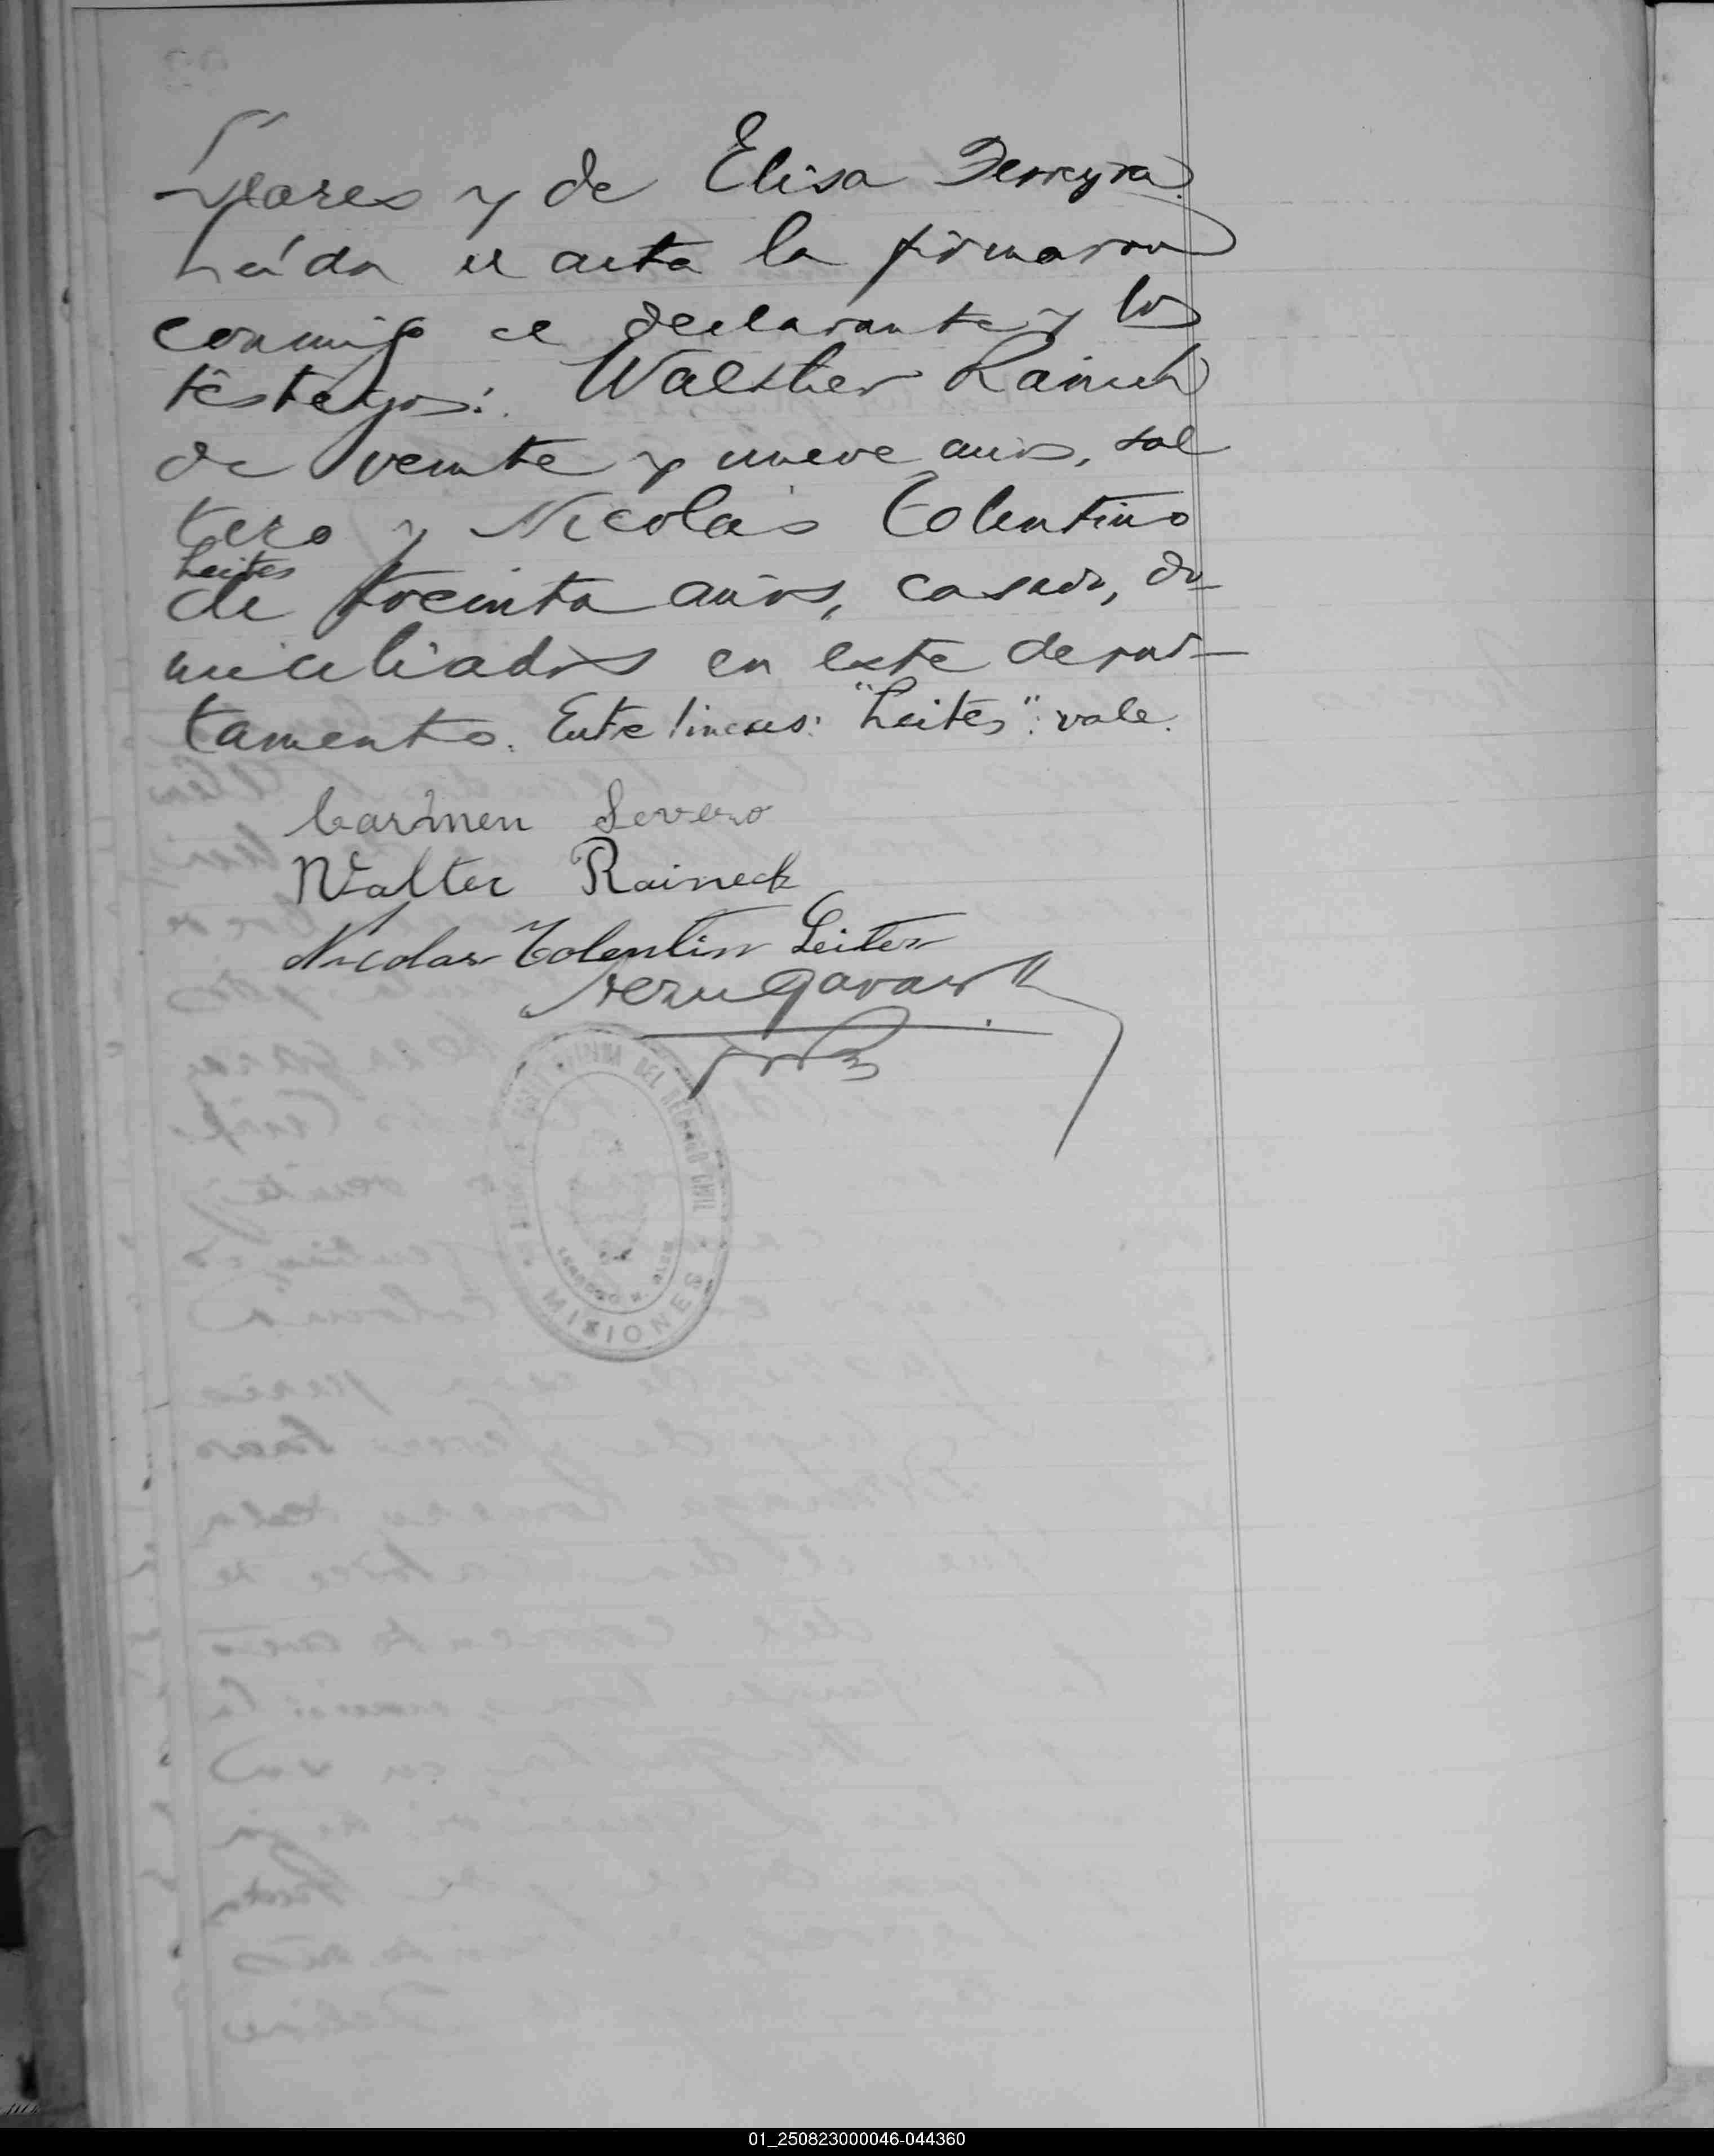 Flores y de Elisa Ferreyra.
Leída el acta la firmaron
conmigo el declarante y los
testigos: Walther Rainek
de veinte y nueve años, sol
tero y Nicolás Tolentino
Leites
de treinta años, casado, do-
miciliados en este depar-
tamento. Entre lineas: "Leites": vale.
Carmen Severo
Walter Raineck
Nicolas Tolentin Leites
OFICINA DEL REGISTRO CIVIL
MISIONES
01_250823000046-044360